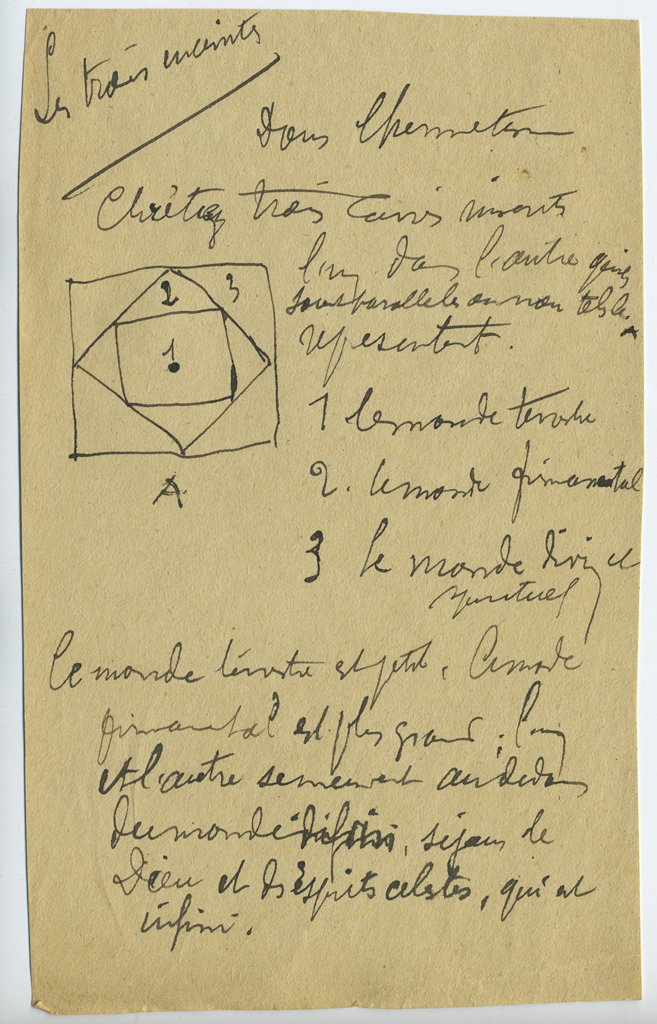 Les trois enceintes
Dans l'hermétisme
Chrétien trois carrés inscrits
l'un dans l'autre qu'ils
soient parallèles ou non tels
représentent.
2 3
1
A
1 le monde terrestre
2. le monde firmamental
3 le monde divin et
spirituel
le monde terrestre est petit, le monde
firmamental est plus grand, l'un
et l'autre se meuvent au dedans
du monde divin, séjour de
Dieu et des Esprits célestes, qui est
infini.